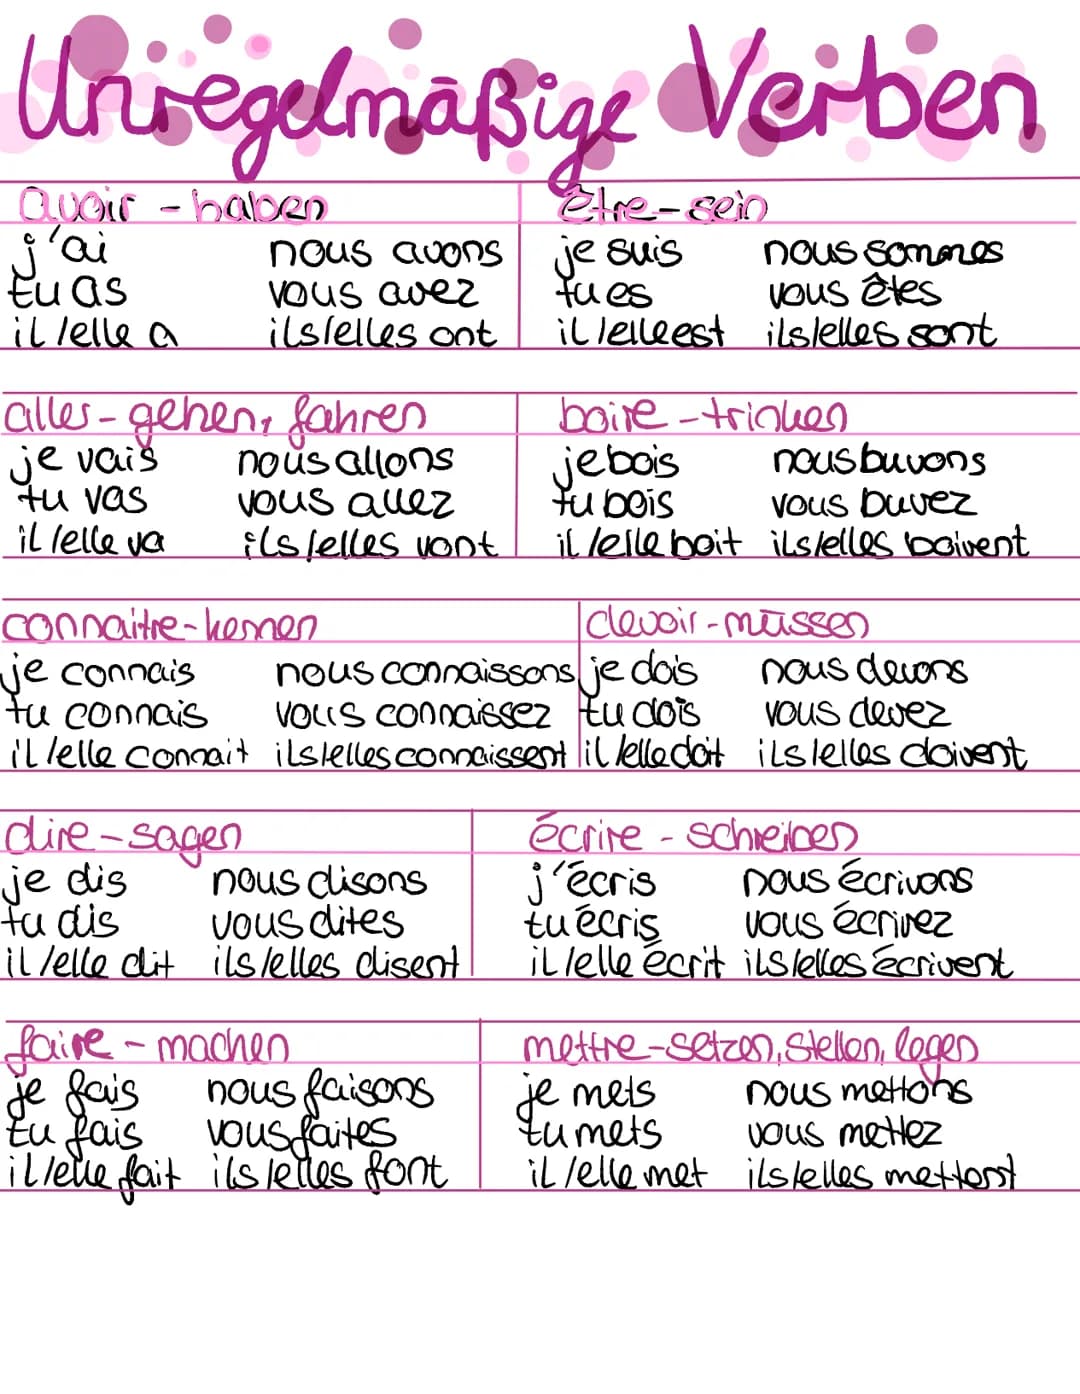 Unregelmäßige Verben
avoir - haben
j'ai nous avons
tu as vous avez
il/elle a ils/elles ont
être - sein
je suis nous sommes
tu es vous êtes
il/elle est ils/elles sont
aller - gehen, fahren
je vais nous allons
tu vas vous allez
il/elle va ils/elles vont
boire - trinken
je bois nous buvons
tu bois vous buvez
il/elle boit ils/elles boivent
connaitre - kennen
je connais nous connaissons
tu connais vous connaissez
il/elle connait ils/elles connaissent
devoir - müssen
je dois nous devons
tu dois vous devez
il/elle doit ils/elles doivent
dire - sagen
je dis nous disons
tu dis vous dites
il/elle dit ils/elles disent
écrire - schreiben
j'écris nous écrivons
tu écris vous écrivez
il/elle écrit ils/elles écrivent
faire - machen
je fais nous faisons
tu fais vous faites
il/elle fait ils/elles font
mettre - setzen, stellen, legen
je mets nous mettons
tu mets vous mettez
il/elle met ils/elles mettent